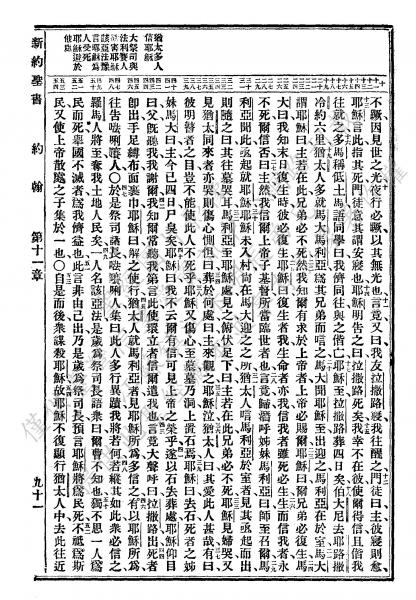 不蹶因見世之光夜行必蹶以其無光也言竟又曰我友拉撒路寢我往醒之門徒曰主彼寢則愈
耶穌言此指其死門徒意其謂安寢也耶穌明告之曰拉撒路死矣我幸不在彼使爾得信且偕我
往就之多馬稱低土馬語同學曰我儕同往與之偕亡耶穌至拉撒路葬四日矣伯大尼去耶路撒
冷約六里猶太人多就馬大馬利亞爲其弟而唁之馬大聞耶穌至出迎之馬利亞在於室馬大
謂耶穌曰主若在此兄弟必不死然我知爾有求於上帝者上帝必賜爾耶穌曰爾兄弟必復生馬
大曰我知末日復生時彼必復生耶穌曰復生者我生命者我信我者雖死必生生而信我者永
不死爾信否曰主然我信上帝子基督所當臨世者也言竟歸潛呼姊妹馬利亞曰師至召爾馬
利亞聞此亟起就耶穌耶穌未入村尚在馬大迎之之所猶太人唁馬利亞於室者見其亟起而出
則隨之曰其往墓哭耳馬利亞至耶穌處見之俯伏足下曰主若在此兄弟必不死耶穌見婦哭又
見猶太同來者亦哭則傷心惻怛曰爾葬於何處曰主來觀之耶穌泣猶太人曰其愛此人甚哉有曰
彼明瞽者之目豈不能使此人不死乎耶穌又傷心至墓墓乃洞上置石焉耶穌曰去石死者之姊
妹馬大曰主今已四日尸臭矣耶穌曰我不云爾有信可見上帝之榮乎遂以石去葬處耶穌仰目
曰父旣聽我我謝爾我知爾常聽我第言此使環立者信爾遣我也言竟大聲呼曰拉撒路出死者
卽出手足縛布面裹巾耶穌曰解之使行猶太人就馬利亞者見耶穌所爲多信之有以耶穌所爲
往告𠵽唎㘔人○於是祭司諸長𠵽唎㘔人集曰此人多行異蹟我將若何若縱其如此衆必信之
羅馬人將至奪我土地人民矣一人名該亞法是歲爲祭司長語衆曰爾曹不知也獨不思一人爲
民而死舉國不滅者爲我儕益也此言非由己出乃是歲爲祭司長預言耶穌將爲民死不祇爲斯
民又使上帝散處之子集於一也○自是而後衆謀殺耶穌故耶穌不復顯行猶太人中去此往近
猶太多人
信耶穌
大祭司與
法利賽人
害耶穌
該亞法豫
言耶穌爲
人受死
耶穌遊於
他處
新約聖書 約翰 第十一章 九十一